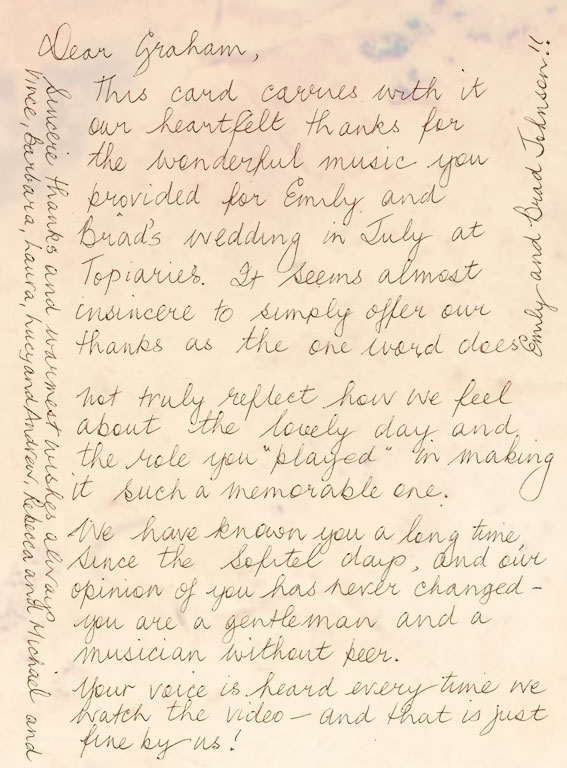 Dear Graham,
This card carries with it
our heartfelt thanks for
the wonderful music you
provided for Emily and
Brad's wedding in July at
Topiaries. It seems almost
insincere to simply offer our
thanks as the one word does
not truly reflect how we feel
about the lovely day and
the role you "played" in making
it such a memorable one.
We have known you a long time,
since the Sofitel days, and our
opinion of you has never changed-
you are a gentleman and a
musician without peer.
Your voice is heard every time we
watch the video - and that is just
fine by us!
Sincere thanks and warmest wishes always
Vince, Barbara, Laura, Lucy and Andrew, Rebecca and Michael and
Emily and Brad Johnson!!